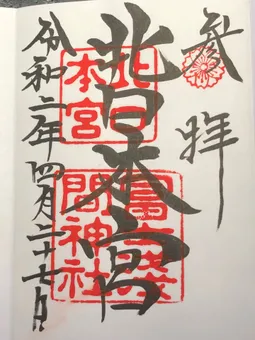 参拝
北口本宮
令和二年四月二十七日
北口
本宮
冨士浅
間神社